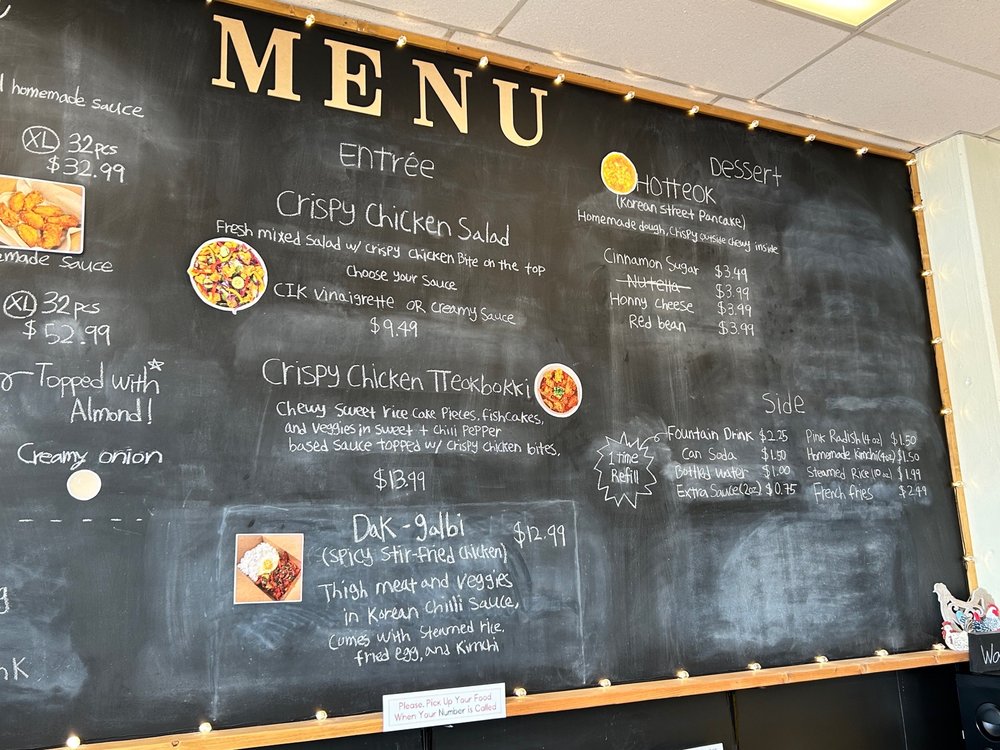 MENU
homemade sauce
XL 32pcs
$32.99
made Sauce
XL 32pcs
$52.99
Topped with
Almond!
Creamy onion
Entrée
Crispy Chicken Salad
Fresh mixed Salad w/ crispy chicken Bite on the top
Choose your sauce
CIK vinaigrette OR creamy sauce
$9.49
Crispy Chicken TTeokbokki
Chewy sweet rice cake pieces, fishcakes,
and veggies in sweet + chili pepper
based sauce topped w/ crispy chicken bites.
$13.99
Dak-galbi $12.99
(spicy stir-fried chicken)
Thigh meat and veggies
in Korean chilli sauce,
Comes with steamed rice.
fried egg, and Kimchi
Dessert
HOTTEOK
(Korean street Pancake)
Homemade dough, crispy outside chewy inside
Cinnamon Sugar $3.49
Nutella $3.99
Honny cheese $3.99
Red bean $3.99
Side
1 time
Refill
Fountain Drink $2.25
Can Soda $1.50
Bottled water $1.00
Extra Sauce(2oz) $0.75
Pink Radish(4oz) $1.50
Homemade Kimchi(4oz) $1.50
Steamed Rice(10oz) $1.99
French fries $2.49
Please, Pick Up Your Food
When Your Number is Called